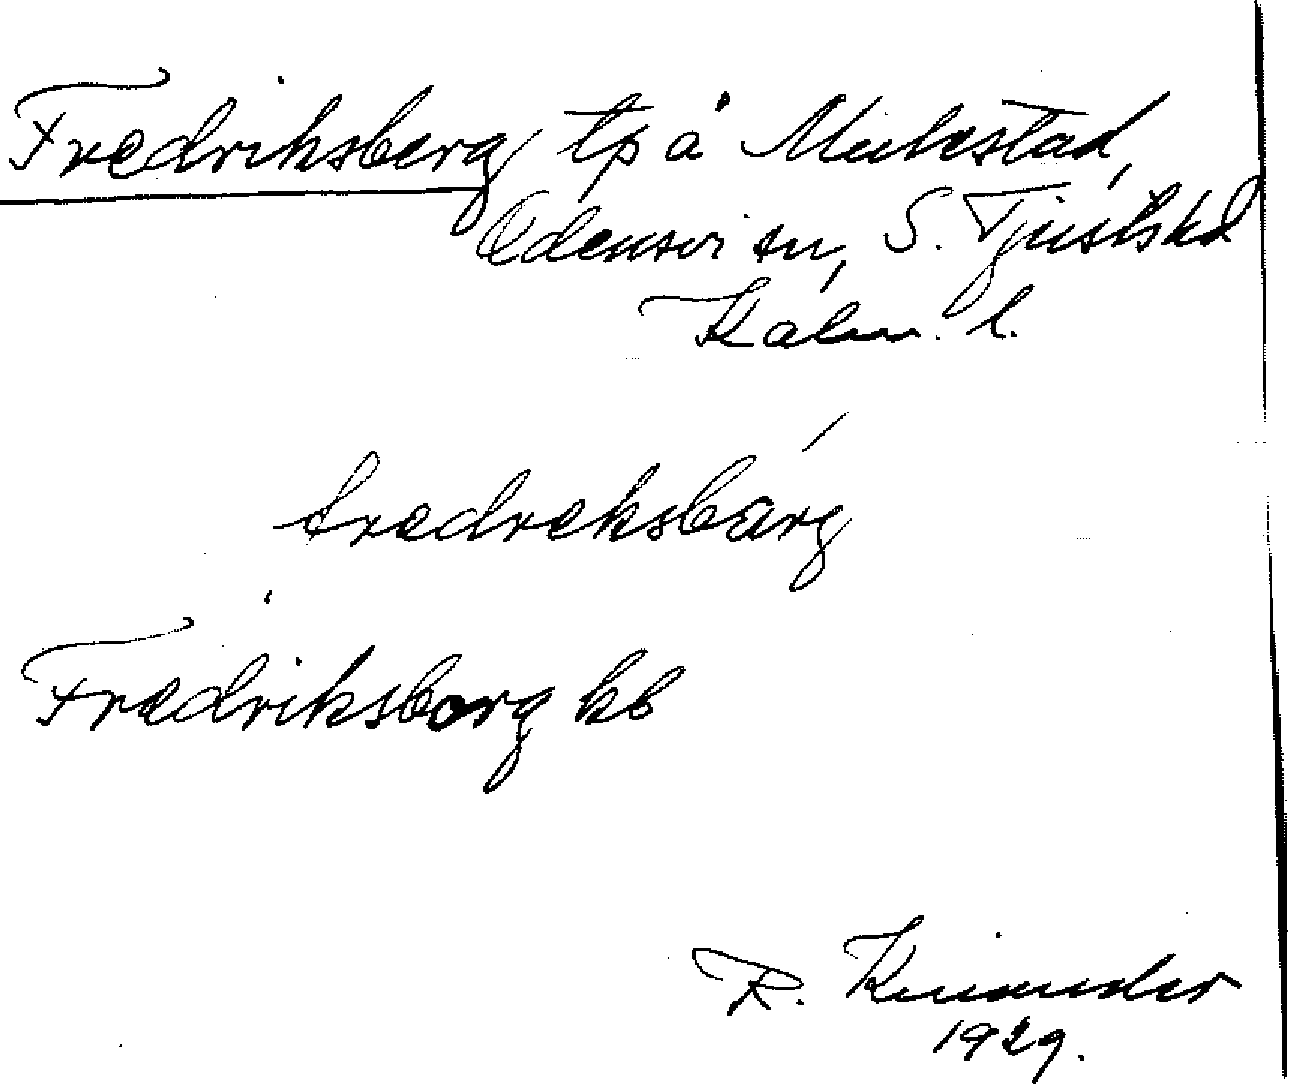 Fredriksberg tp å Mickestad,
Odensvi sn, S. Tjusts hd
Kalm. l.
fredreksbärg
Fredriksborg kb
R.
1929.